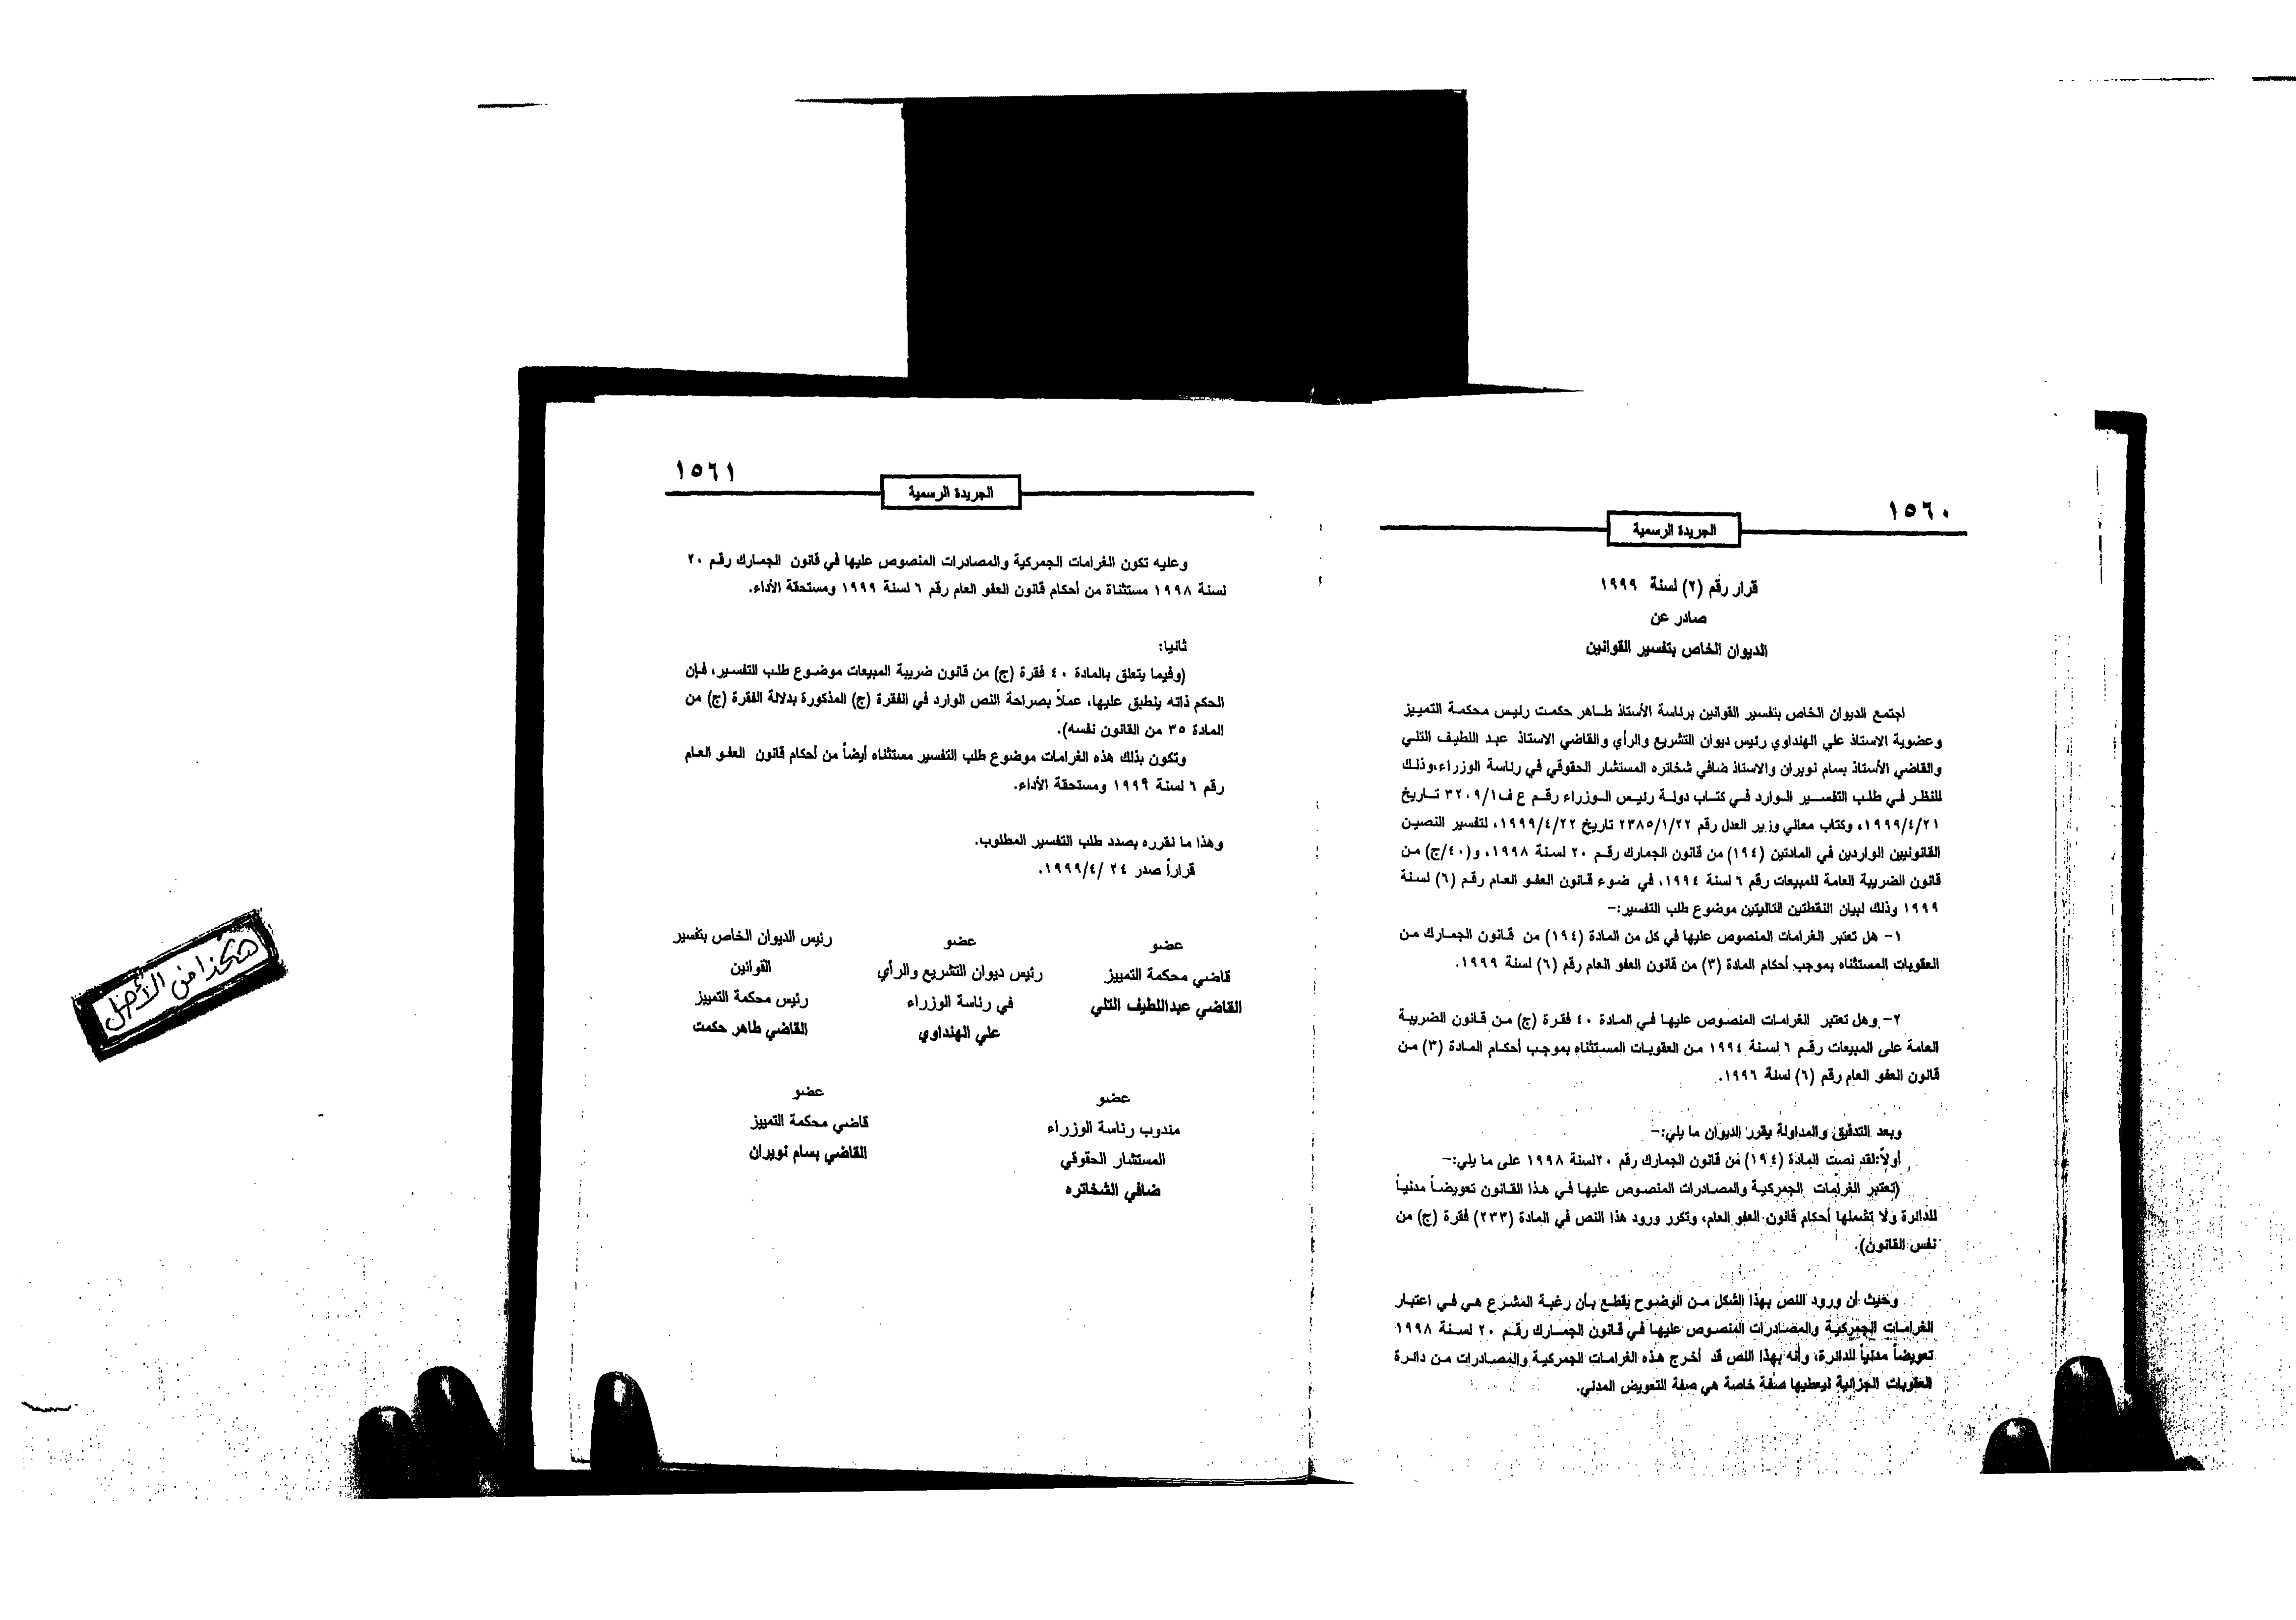 ١٥٦٠
الجريدة الرسمية
قرار رقم (٢) لسنة ١٩٩٩
صادر عن
الديوان الخاص بتفسير القوانين
اجتمع الديوان الخاص بتفسير القوانين برئاسة الأستاذ طاهر حكمت رئيس محكمة التمييز
وعضوية الاستاذ علي الهنداوي رئيس ديوان التشريع والرأي والقاضي الاستاذ عبد اللطيف التلي
والقاضي الأستاذ بسام نويران والاستاذ ضافي شخاتره المستشار الحقوقي في رئاسة الوزراء،وذلك
للنظر في طلب التفسير الوارد في كتاب دولة رئيس الوزراء رقم ع ف٣٢٠٩/١ تاريخ
١٩٩٩/٤/٢١، وكتاب معالي وزير العدل رقم ٢٣٨٥/١/٢٢ تاريخ ١٩٩٩/٤/٢٢، لتفسير النصين
القانونيين الواردين في المادتين (١٩٤) من قانون الجمارك رقم ٢٠ لسنة ١٩٩٨، و(٤٠/ج) من
قانون الضريبة العامة للمبيعات رقم ٦ لسنة ١٩٩٤، في ضوء قانون العفو العام رقم (٦) لسنة
١٩٩٩ وذلك لبيان النقطتين التاليتين موضوع طلب التفسير:-
١- هل تعتبر الغرامات المنصوص عليها في كل من المادة (١٩٤) من قانون الجمارك من
العقوبات المستثناه بموجب أحكام المادة (٣) من قانون العفو العام رقم (٦) لسنة ١٩٩٩.
٢- وهل تعتبر الغرامات المنصوص عليها في المادة ٤٠ فقرة (ج) من قانون الضريبة
العامة على المبيعات رقم ٦ لسنة ١٩٩٤ من العقوبات المستثناه بموجب أحكام المادة (٣) من
قانون العفو العام رقم (٦) لسنة ١٩٩٦.
وبعد التدقيق والمداولة يقرر الديوان ما يلي:-
أولاً:لقد نصت المادة (١٩٤) من قانون الجمارك رقم ٢٠لسنة ١٩٩٨ على ما يلي:-
(تعتبر الغرامات الجمركية والمصادرات المنصوص عليها في هذا القانون تعويضاً مدنياً
للدائرة ولا تشملها أحكام قانون العفو العام، وتكرر ورود هذا النص في المادة (٢٣٣) فقرة (ج) من
نفس القانون).
وحيث أن ورود النص بهذا الشكل من الوضوح يقطع بأن رغبة المشرع هي في اعتبار
الغرامات الجمركية والمصادرات المنصوص عليها في قانون الجمارك رقم ٢٠ لسنة ١٩٩٨
تعويضاً مدنياً للدائرة، وأنه بهذا النص قد أخرج هذه الغرامات الجمركية والمصادرات من دائرة
العقوبات الجزائية ليعطيها صفة خاصة هي صفة التعويض المدني.
١٥٦١
الجريدة الرسمية
وعليه تكون الغرامات الجمركية والمصادرات المنصوص عليها في قانون الجمارك رقم ٢٠
لسنة ١٩٩٨ مستثناة من أحكام قانون العفو العام رقم ٦ لسنة ١٩٩٩ ومستحقة الأداء.
ثانيا:
(وفيما يتعلق بالمادة ٤٠ فقرة (ج) من قانون ضريبة المبيعات موضوع طلب التفسير، فإن
الحكم ذاته ينطبق عليها، عملاً بصراحة النص الوارد في الفقرة (ج) المذكورة بدلالة الفقرة (ج) من
المادة ٣٥ من القانون نفسه).
وتكون بذلك هذه الغرامات موضوع طلب التفسير مستثناه أيضاً من أحكام قانون العفو العام
رقم ٦ لسنة ١٩٩٩ ومستحقة الأداء.
وهذا ما نقرره بصدد طلب التفسير المطلوب.
قراراً صدر ٢٤ /١٩٩٩/٤.
عضو
قاضي محكمة التمييز
القاضي عبداللطيف التلي
عضو
رئيس ديوان التشريع والرأي
في رئاسة الوزراء
علي الهنداوي
رئيس الديوان الخاص بتفسير
القوانين
رئيس محكمة التمييز
القاضي طاهر حكمت
عضو
مندوب رئاسة الوزراء
المستشار الحقوقي
ضافي الشخاتره
عضو
قاضي محكمة التمييز
القاضي بسام نويران
هكذا من الأصل